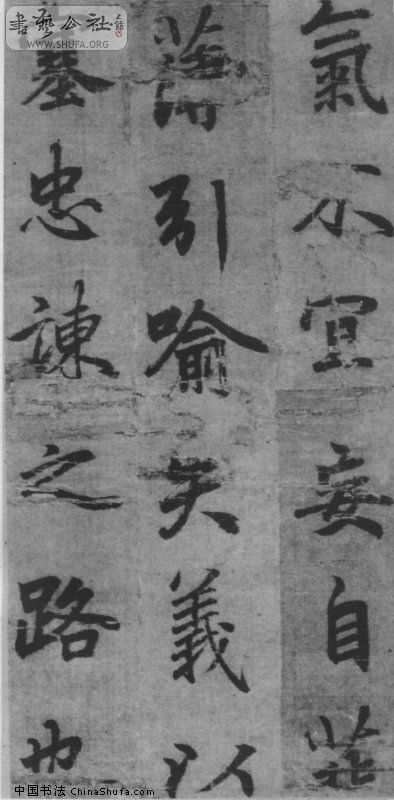 氣不宜妄自菲
薄引喻失義以
塞忠諫之路也
書藝公社
www.SHUFA.ORG
中国书法 ChinaShufa.com